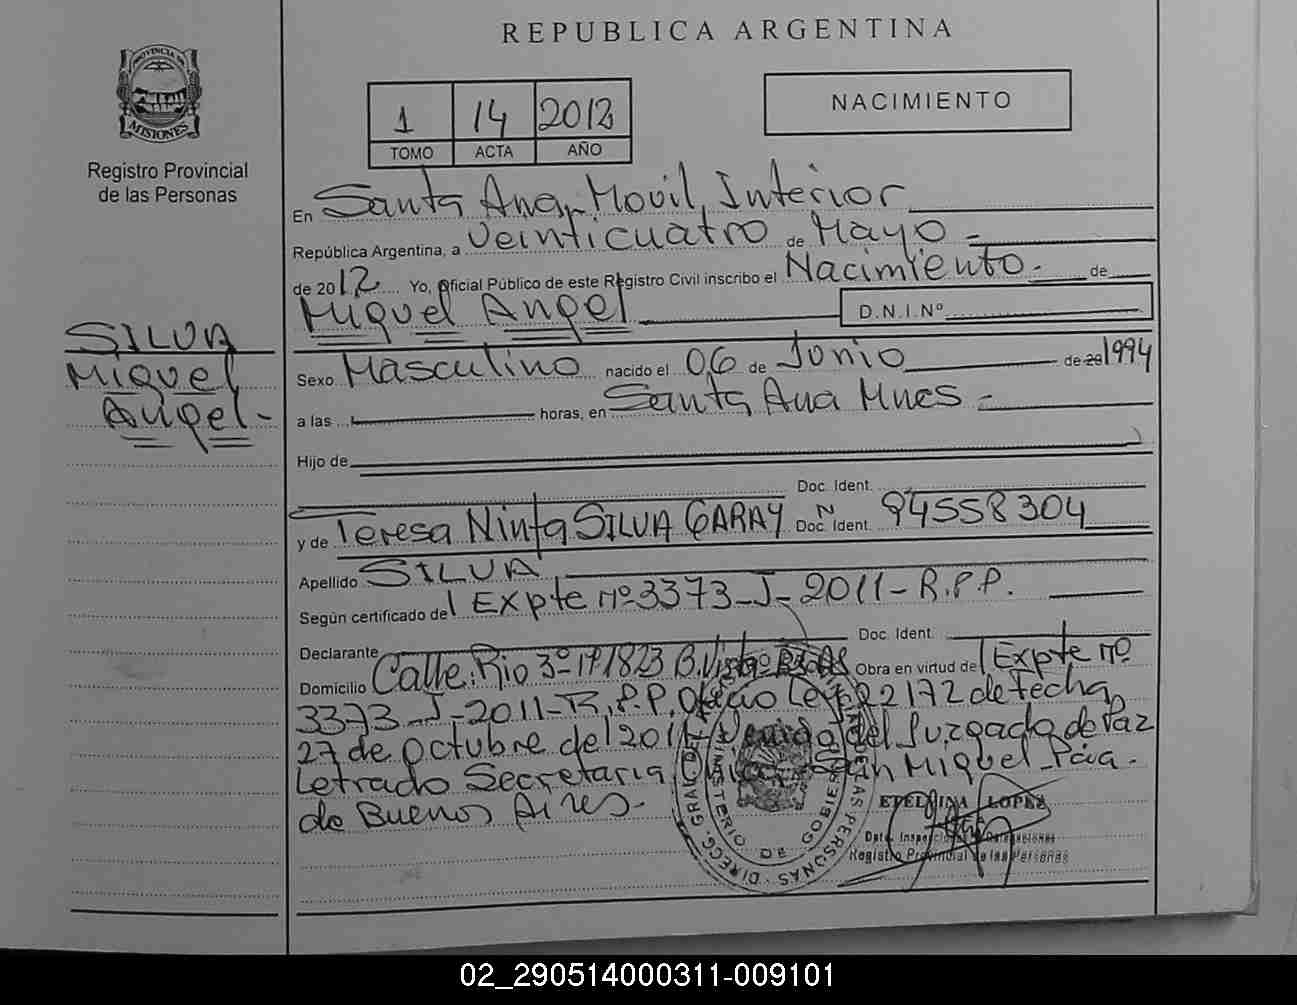 REPUBLICA ARGENTINA
PROVINCIA DE
MISIONES
Registro Provincial
de las Personas
1 14 2012
TOMO ACTA AÑO
NACIMIENTO
En Santa Ana, Movil, Interior
República Argentina, a Veinticuatro de Mayo -
de 2012 Yo, Oficial Público de este Registro Civil inscribo el Nacimiento - de
Miguel Angel D.N.I.Nº
SILVA
Miguel
Angel -
Sexo Masculino nacido el 06 de Junio de 20 1994
a las horas, en Santa Ana Mnes -
Hijo de
Doc. Ident.
y de Teresa Ninfa SILVA GARAY Doc. Ident. N 94558304
Apellido SILVA
Según certificado del Expte Nº 3373-J-2011-R.P.P.
Declarante Doc. Ident.
Domicilio Calle: Rio 3º Nº 1823 B. Vista Obra en virtud del Expte Nº
3373-J-2011-R.P.P. Ley 22172 de fecha
27 de Octubre del 2011 del Juzgado de Paz
Letrado Secretaria San Miguel Pcia.
de Buenos Aires.-
MINISTERIO DE GOBIERNO
DE LAS PERSONAS
ETELVINA LOPEZ
Registro Provincial de las Personas
02_290514000311-009101